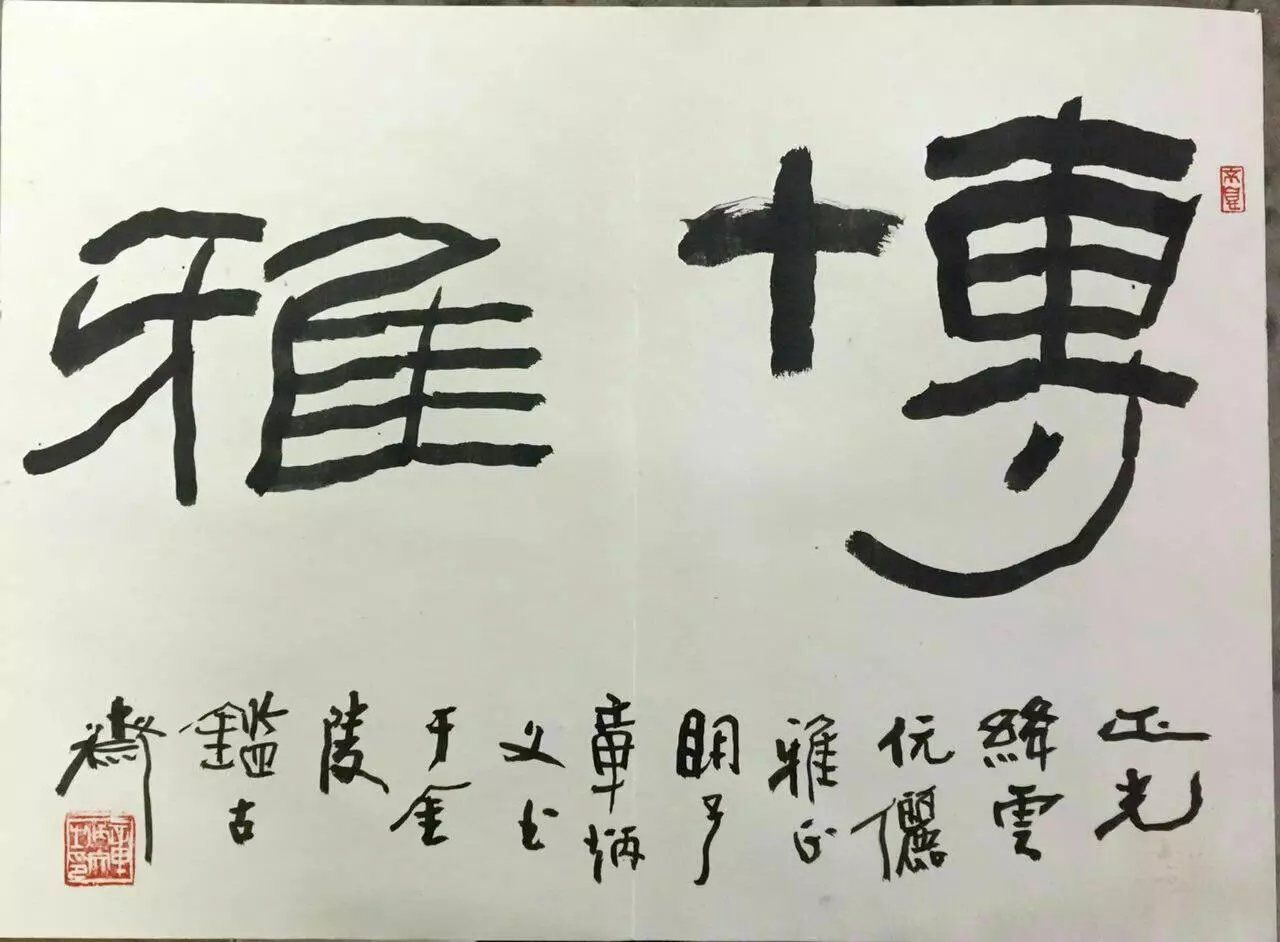 博雅
正光
絳雲
伉儷
雅正
明
章炳
文书
于金
陵
鑑古
齋